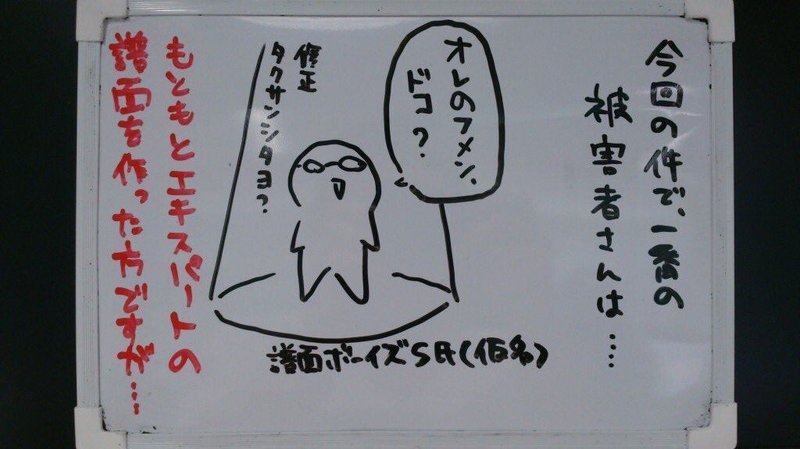 今回の件で、一番の
被害者さんは‥‥
オレのフメン、
ドコ?
修正
タクサンシタヨ?
譜面ボーイズS氏(仮名)
もともとエキスパートの
譜面を作った方ですが…